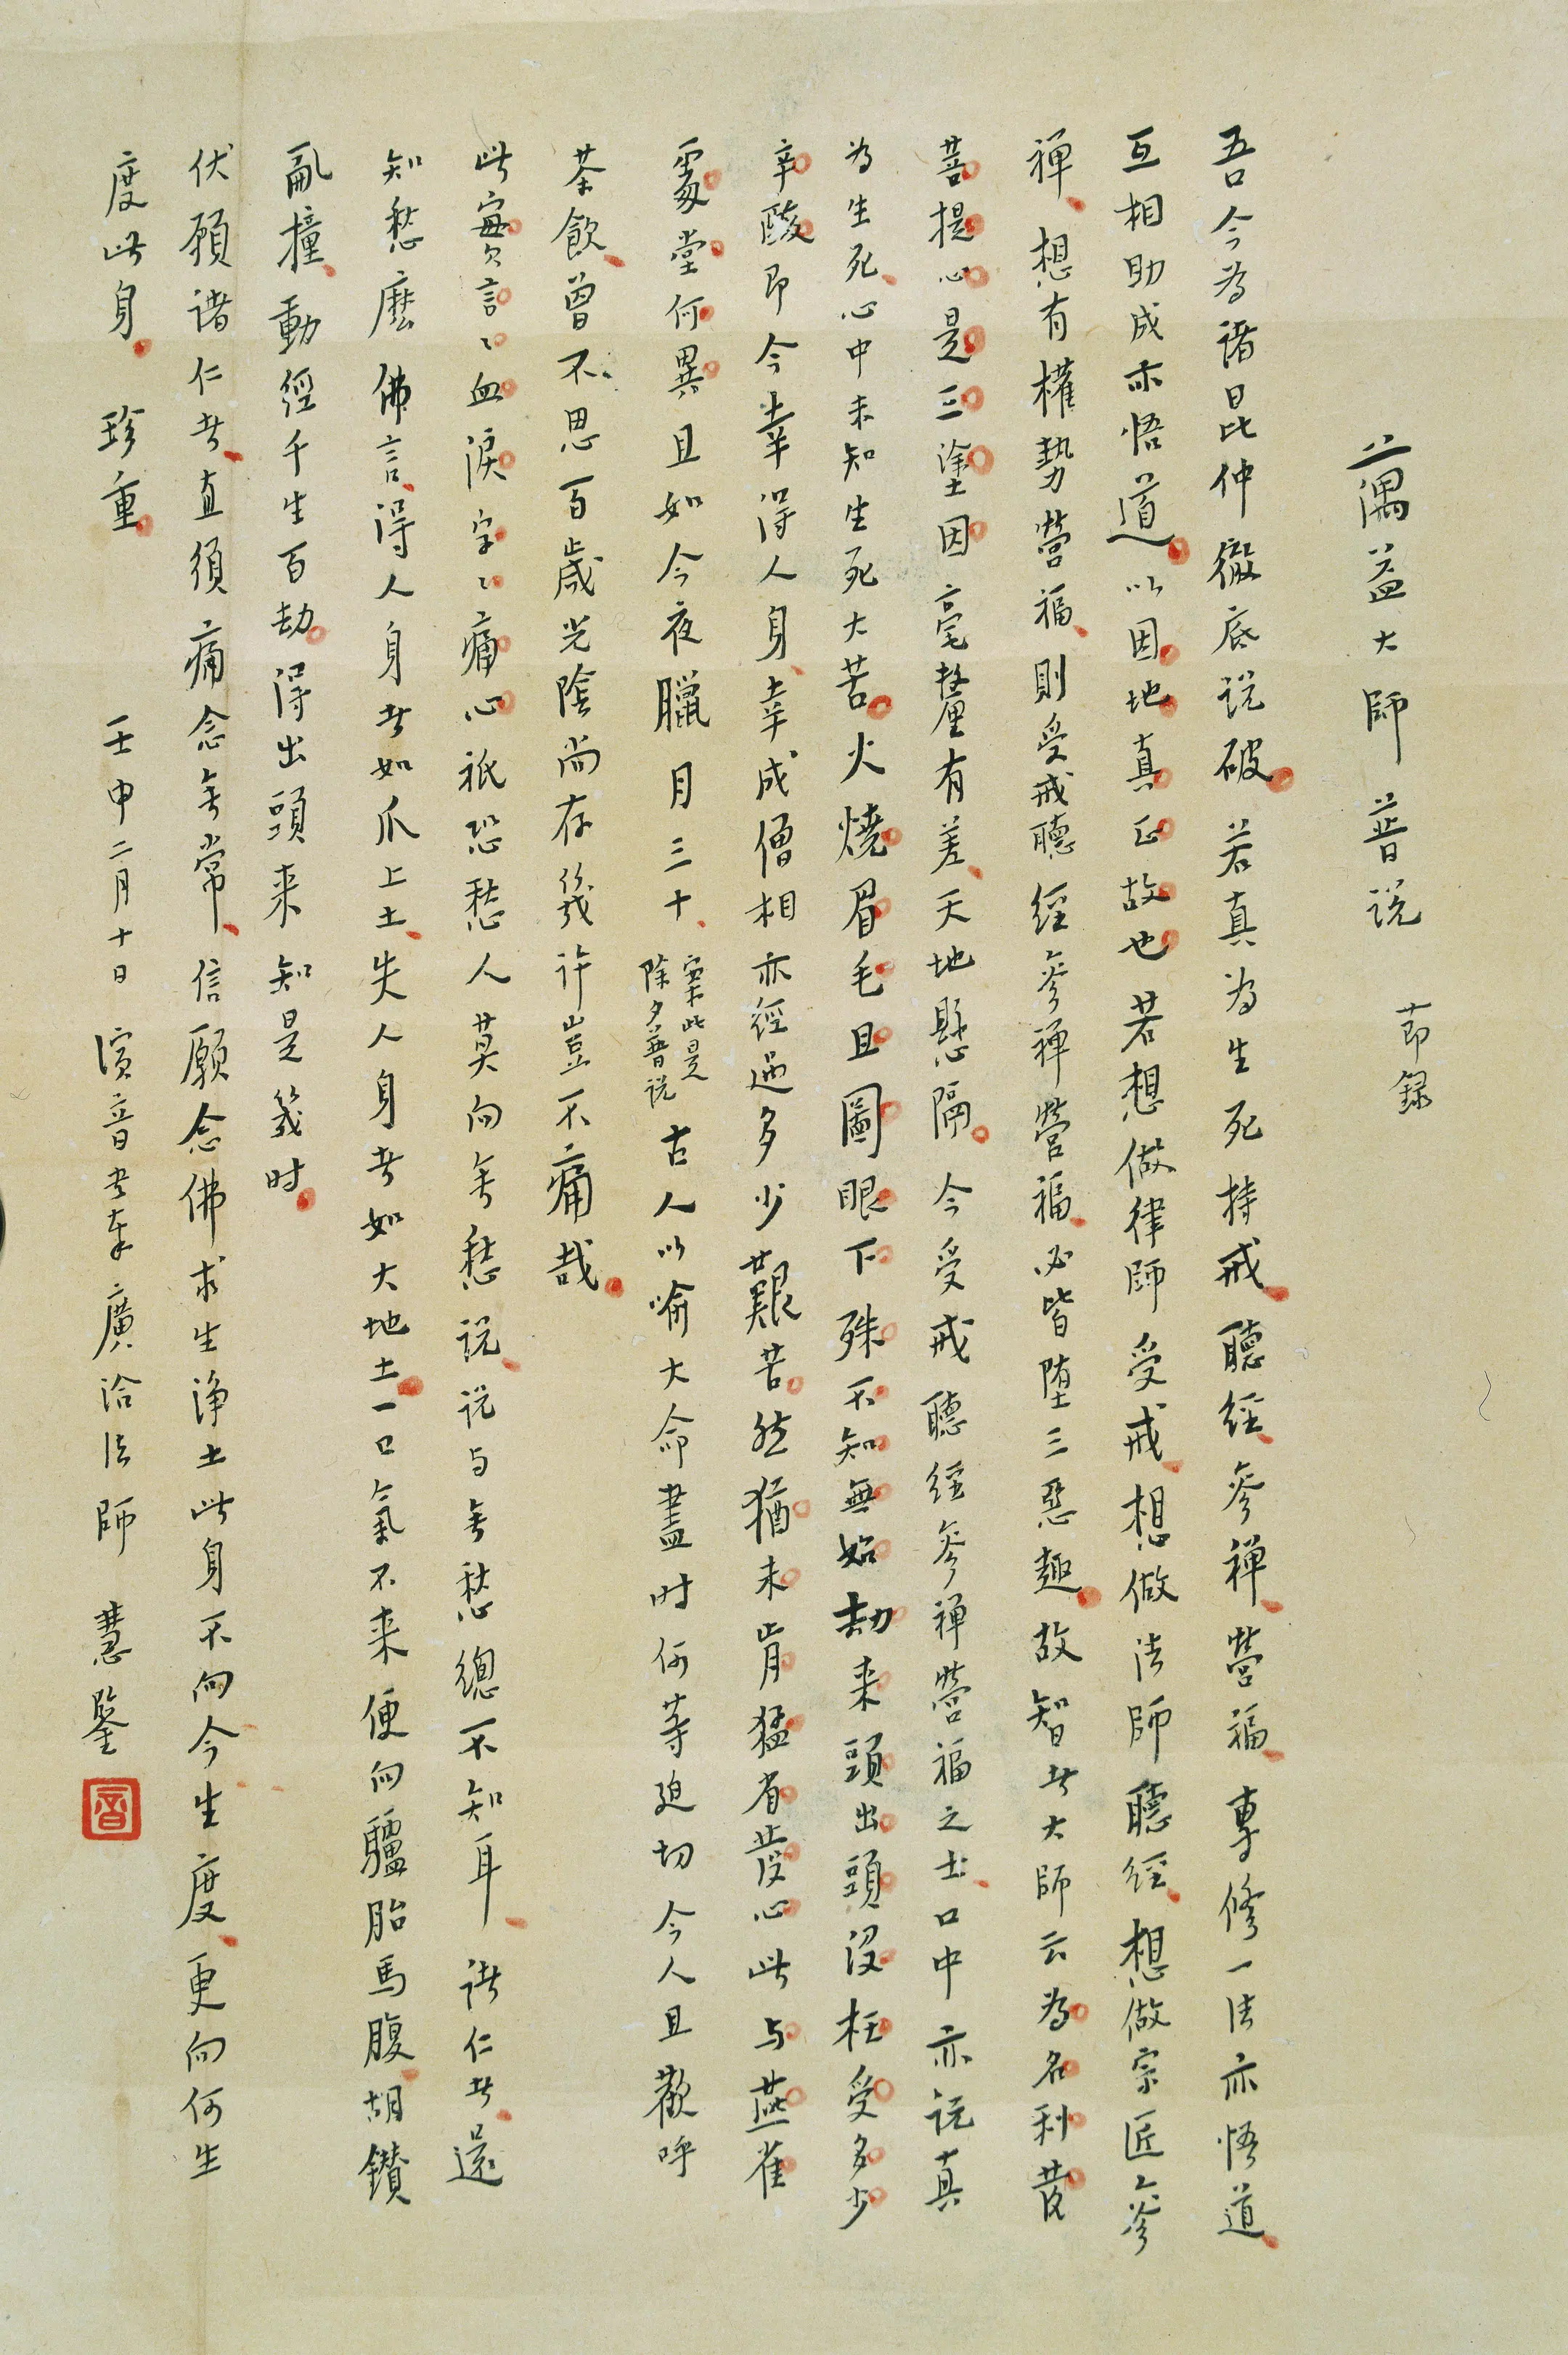 蕅益大師普說 節録
吾今為諸昆仲徹底説破若真為生死持戒聽經參禪營福專修一法亦悟道
互相助成亦悟道以因地真正故也若想做律師受戒想做法師聽經想做宗匠參
禪想有權勢營福則受戒聽經參禪營福必皆墮三惡趣故智者大師云為名利發
菩提心是三塗因毫釐有差天地懸隔今受戒聽經參禪營福之士口中亦説真
為生死心中未知生死大苦火燒眉毛且圖眼下殊不知無始劫来頭出頭沒枉受多少
辛酸即今幸得人身幸成僧相亦經過多少艱苦然猶未肯猛省發心此与燕雀
處堂何異且如今夜臘月三十案此是除夕普説古人以喻大命盡时何等迫切今人且歡呼
茶飲曾不思百歲光陰尚存幾许豈不痛哉
此實言〻血淚字〻痛心祇恐愁人莫向無愁説説与無愁總不知耳諸仁者還
知愁麼佛言得人身者如爪上土失人身者如大地土一口氣不来便向驢胎馬腹胡鑽
亂撞動經千生百劫得出頭来知是幾时
伏願諸仁者直須痛念無常信願念佛求生淨土此身不向今生度更向何生
度此身 珍重 壬申二月十日 演音书奉廣洽法師 慧鑒
音